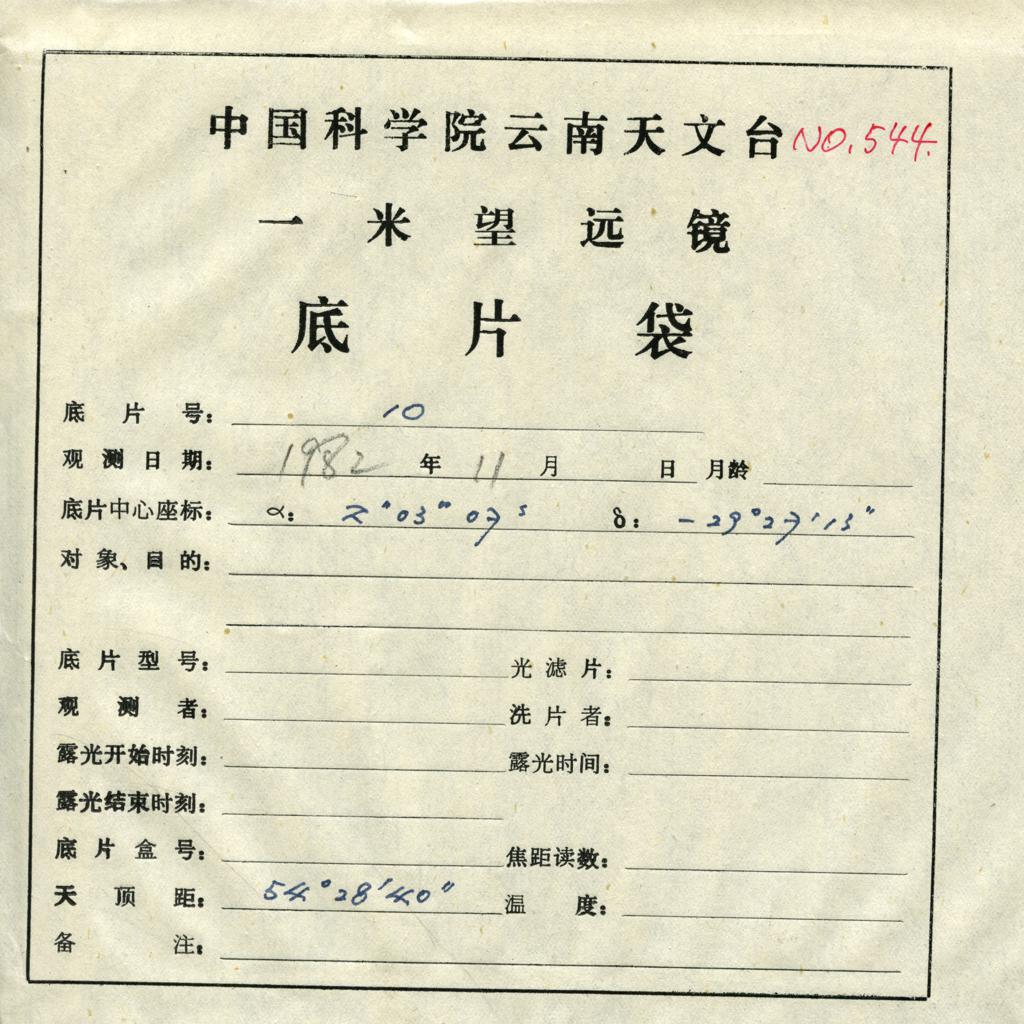 中国科学院云南天文台 NO.544.
一米望远镜
底片袋
底片号： 10
观测日期： 1982 年 11 月 日 月龄
底片中心座标： α： 2" 03" 07ˢ δ： -29°27'13"
对象、目的：
底片型号： 光滤片：
观测者： 洗片者：
露光开始时刻： 露光时间：
露光结束时刻：
底片盒号： 焦距读数：
天顶距： 54°28'40" 温度：
备注：